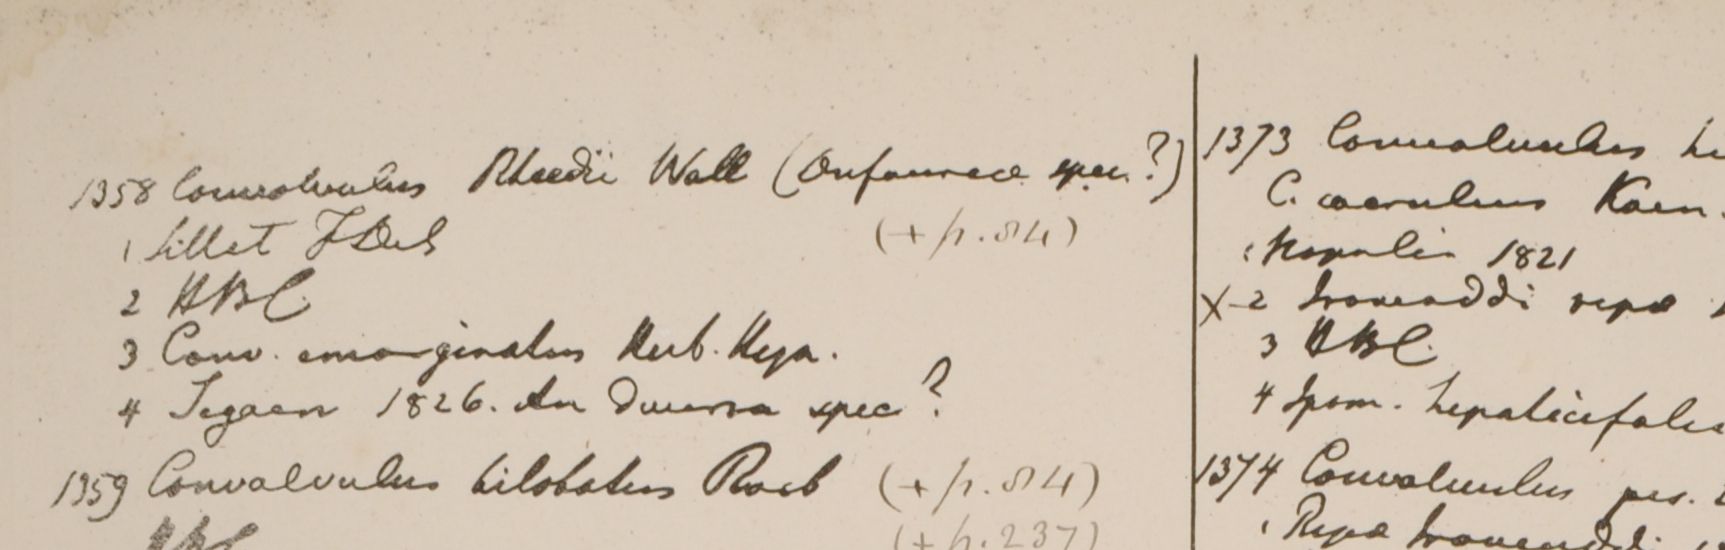 1358 Convolvulus Rheedii Wall ( spec.?)
(+ p. 84)
1 Sillet
2 HBC
3 Conv. emarginatus Herb. Heyn.
4 Segaen 1826. An diversa spec?
1359 Convolvulus bilobatus Roxb (+ p. 84)
HBC (+ p. 237)
1373 Convolvulus
C. coeruleus Koen.
1 Napalia 1821
X 2 Irawaddi ripa
3 HBC.
4 Ipom. hepaticifolia
1374 Convolvulus pes.
1 Ripa Irawaddi